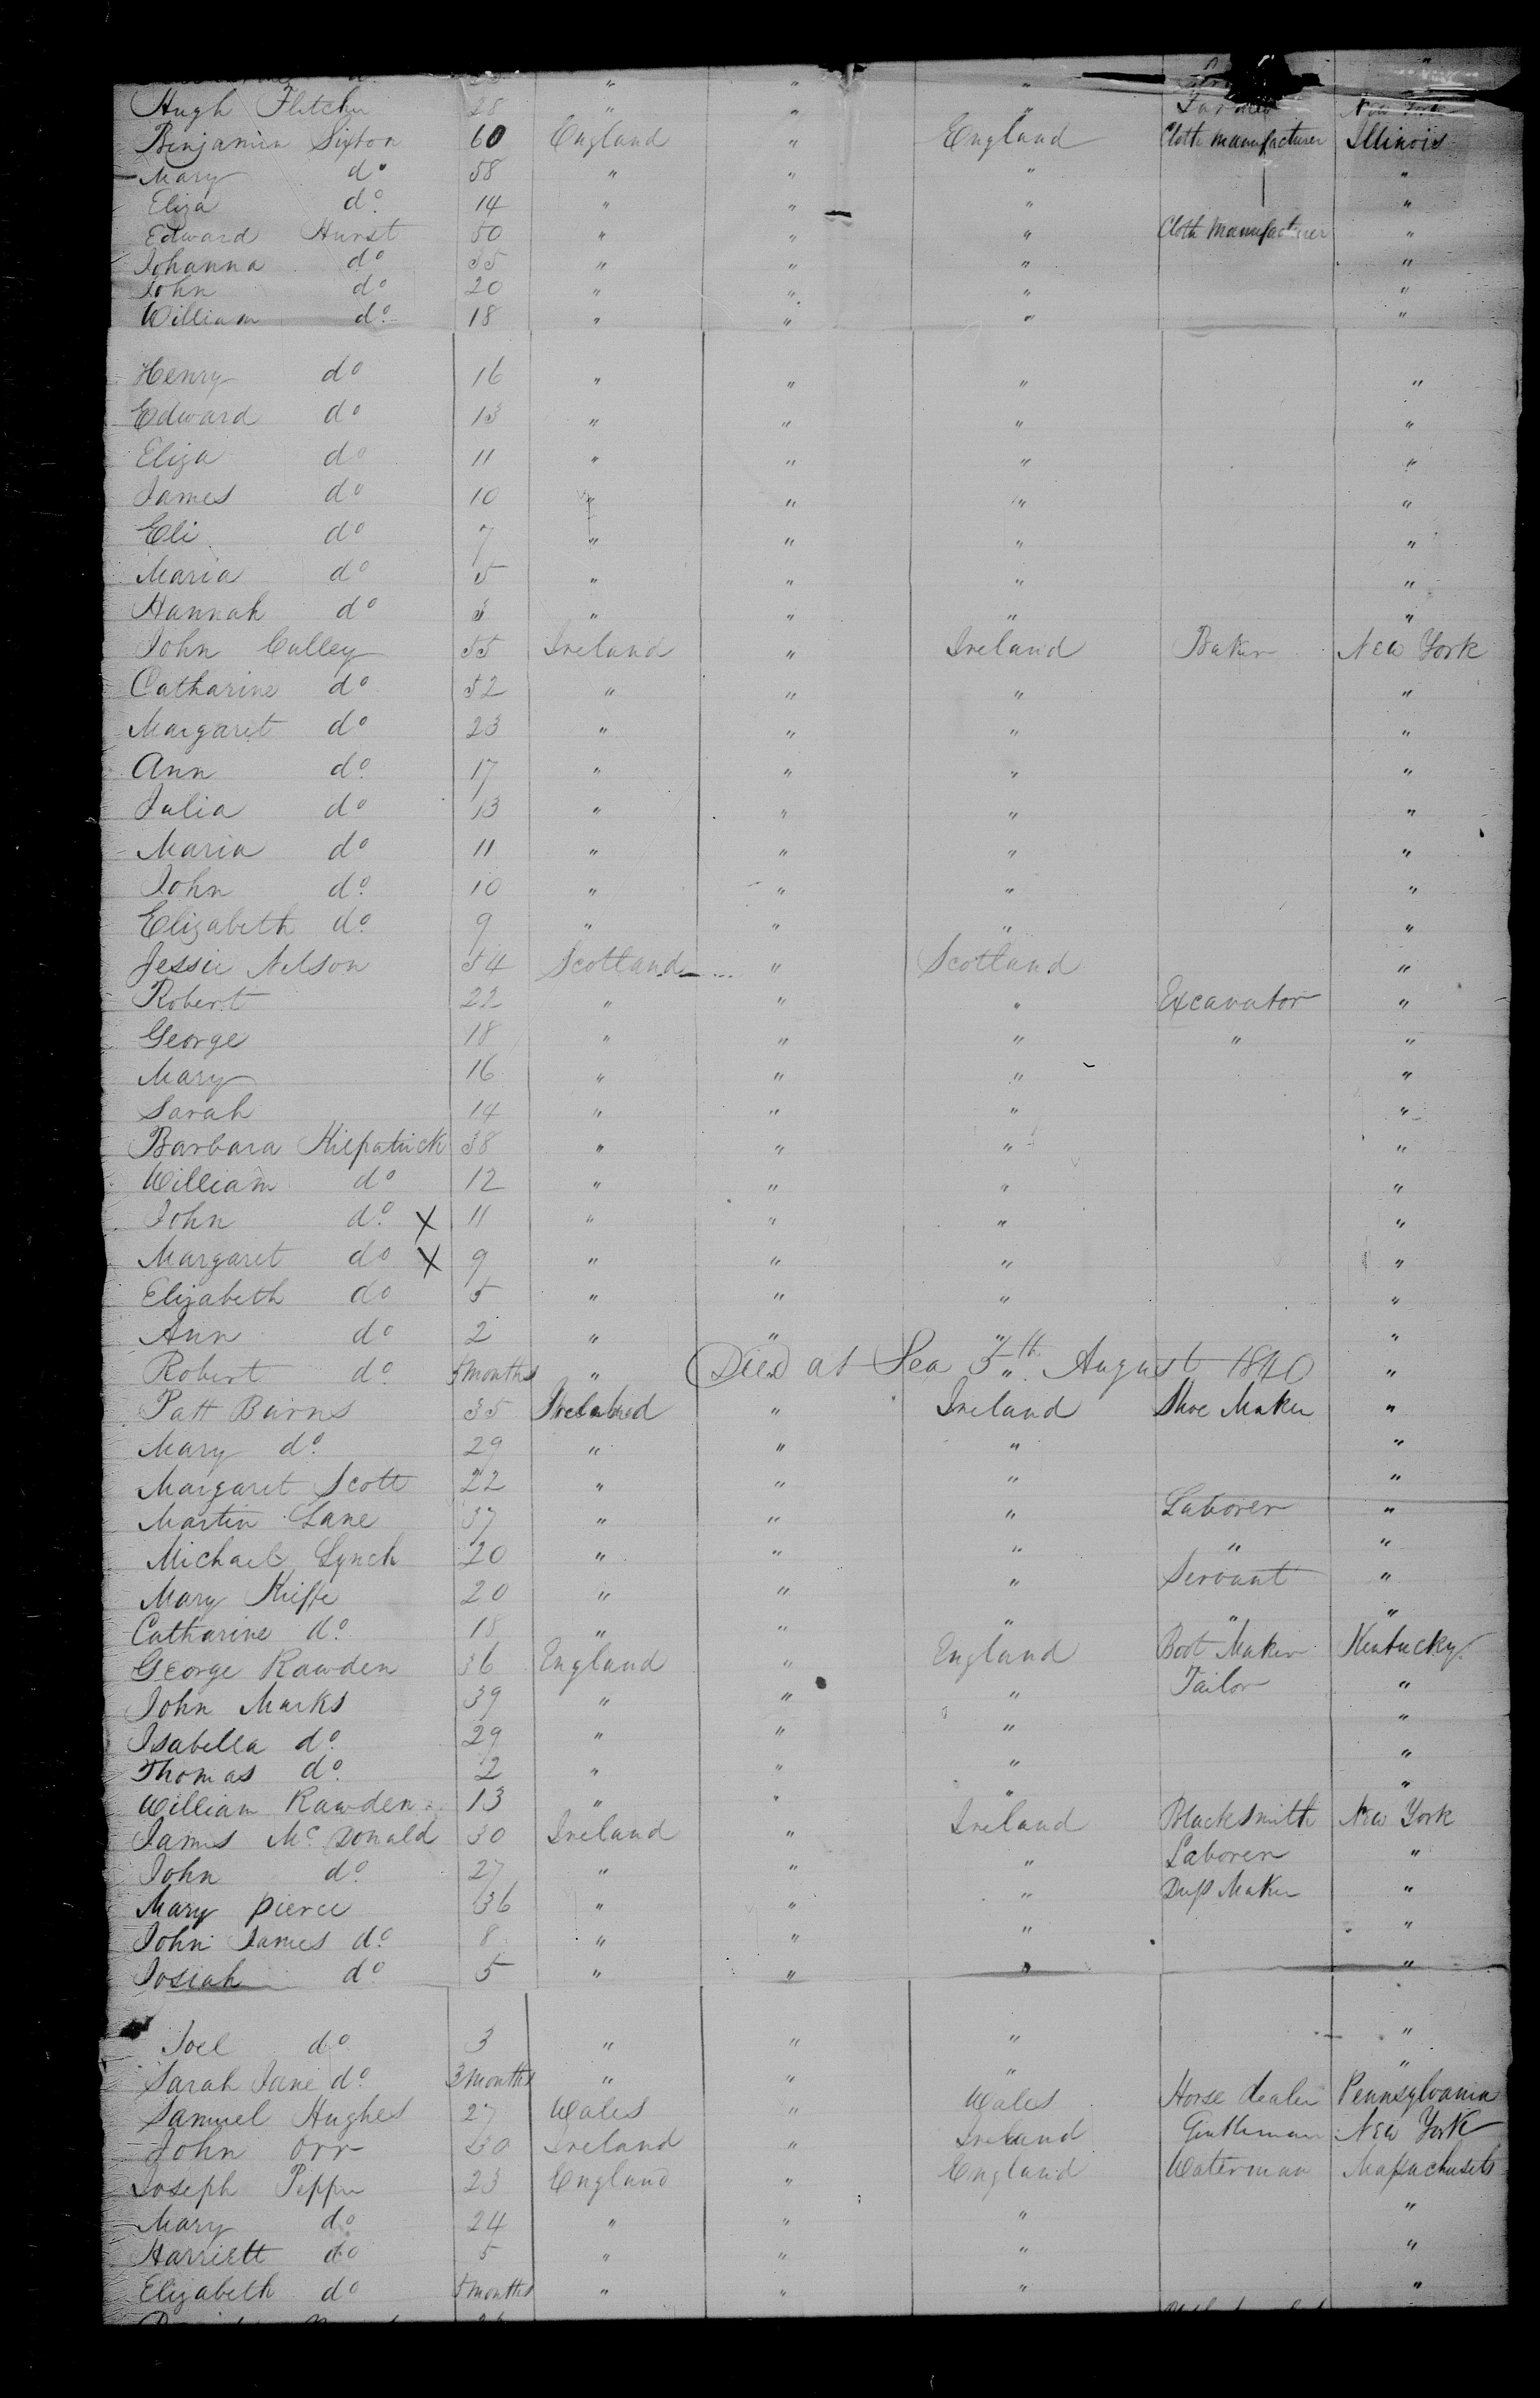 Hugh Fletcher 28 " " " Farmer New York
Benjamin Sixton 60 England " England Cloth Manufacturer Illinois
Mary do 58 " " " "
Eliza do 14 " " " "
Edward Hurst 50 " " " Cloth Manufacturer "
Johanna do 35 " " " "
John do 20 " " " "
William do 18 " " " "
Henry do 16 " " " "
Edward do 13 " " " "
Eliza do 11 " " " "
James do 10 " " " "
Eli do 7 " " " "
Maria do 5 " " " "
Hannah do 3 " " " "
John Culley 55 Ireland " Ireland Baker New York
Catharine do 52 " " " "
Margaret do 23 " " " "
Ann do 17 " " " "
Julia do 13 " " " "
Maria do 11 " " " "
John do 10 " " " "
Elizabeth do 9 " " " "
Jessie Nelson 54 Scotland " Scotland "
Robert 22 " " " Excavator "
George 18 " " " " "
Mary 16 " " " "
Sarah 14 " " " "
Barbara Kilpatrick 38 " " " "
William do 12 " " " "
John do X 11 " " " "
Margaret do X 9 " " " "
Elizabeth do 5 " " " "
Ann do 2 " " " "
Robert do 5 months " Died at Sea 5th August 1840 "
Patt Burns 35 Ireland " Ireland Shoe Maker "
Mary do 29 " " " "
Margaret Scott 22 " " " "
Martin Lane 37 " " " Laborer "
Michael Lynch 20 " " " " "
Mary Kieffe 20 " " " Servant "
Catharine do 18 " " " " "
George Rawden 36 England " England Boot Maker Kentucky
John Marks 39 " " " Tailor "
Isabella do 29 " " " "
Thomas do 2 " " " "
William Rawden 13 " " " "
James McDonald 30 Ireland " Ireland Blacksmith New York
John do 27 " " " Laborer "
Mary Pierce 36 " " " Dress Maker "
John James do 8 " " " "
Josiah do 5 " " " "
Joel do 3 " " " "
Sarah Jane do 3 months " " " "
Samuel Hughes 27 Wales " Wales Horse dealer Pennsylvania
John Orr 30 Ireland " Ireland Gentleman New York
Joseph Pepper 23 England " England Waterman Massachusets
Mary do 24 " " " "
Harriett do 5 " " " "
Elizabeth do 5 months " " " "